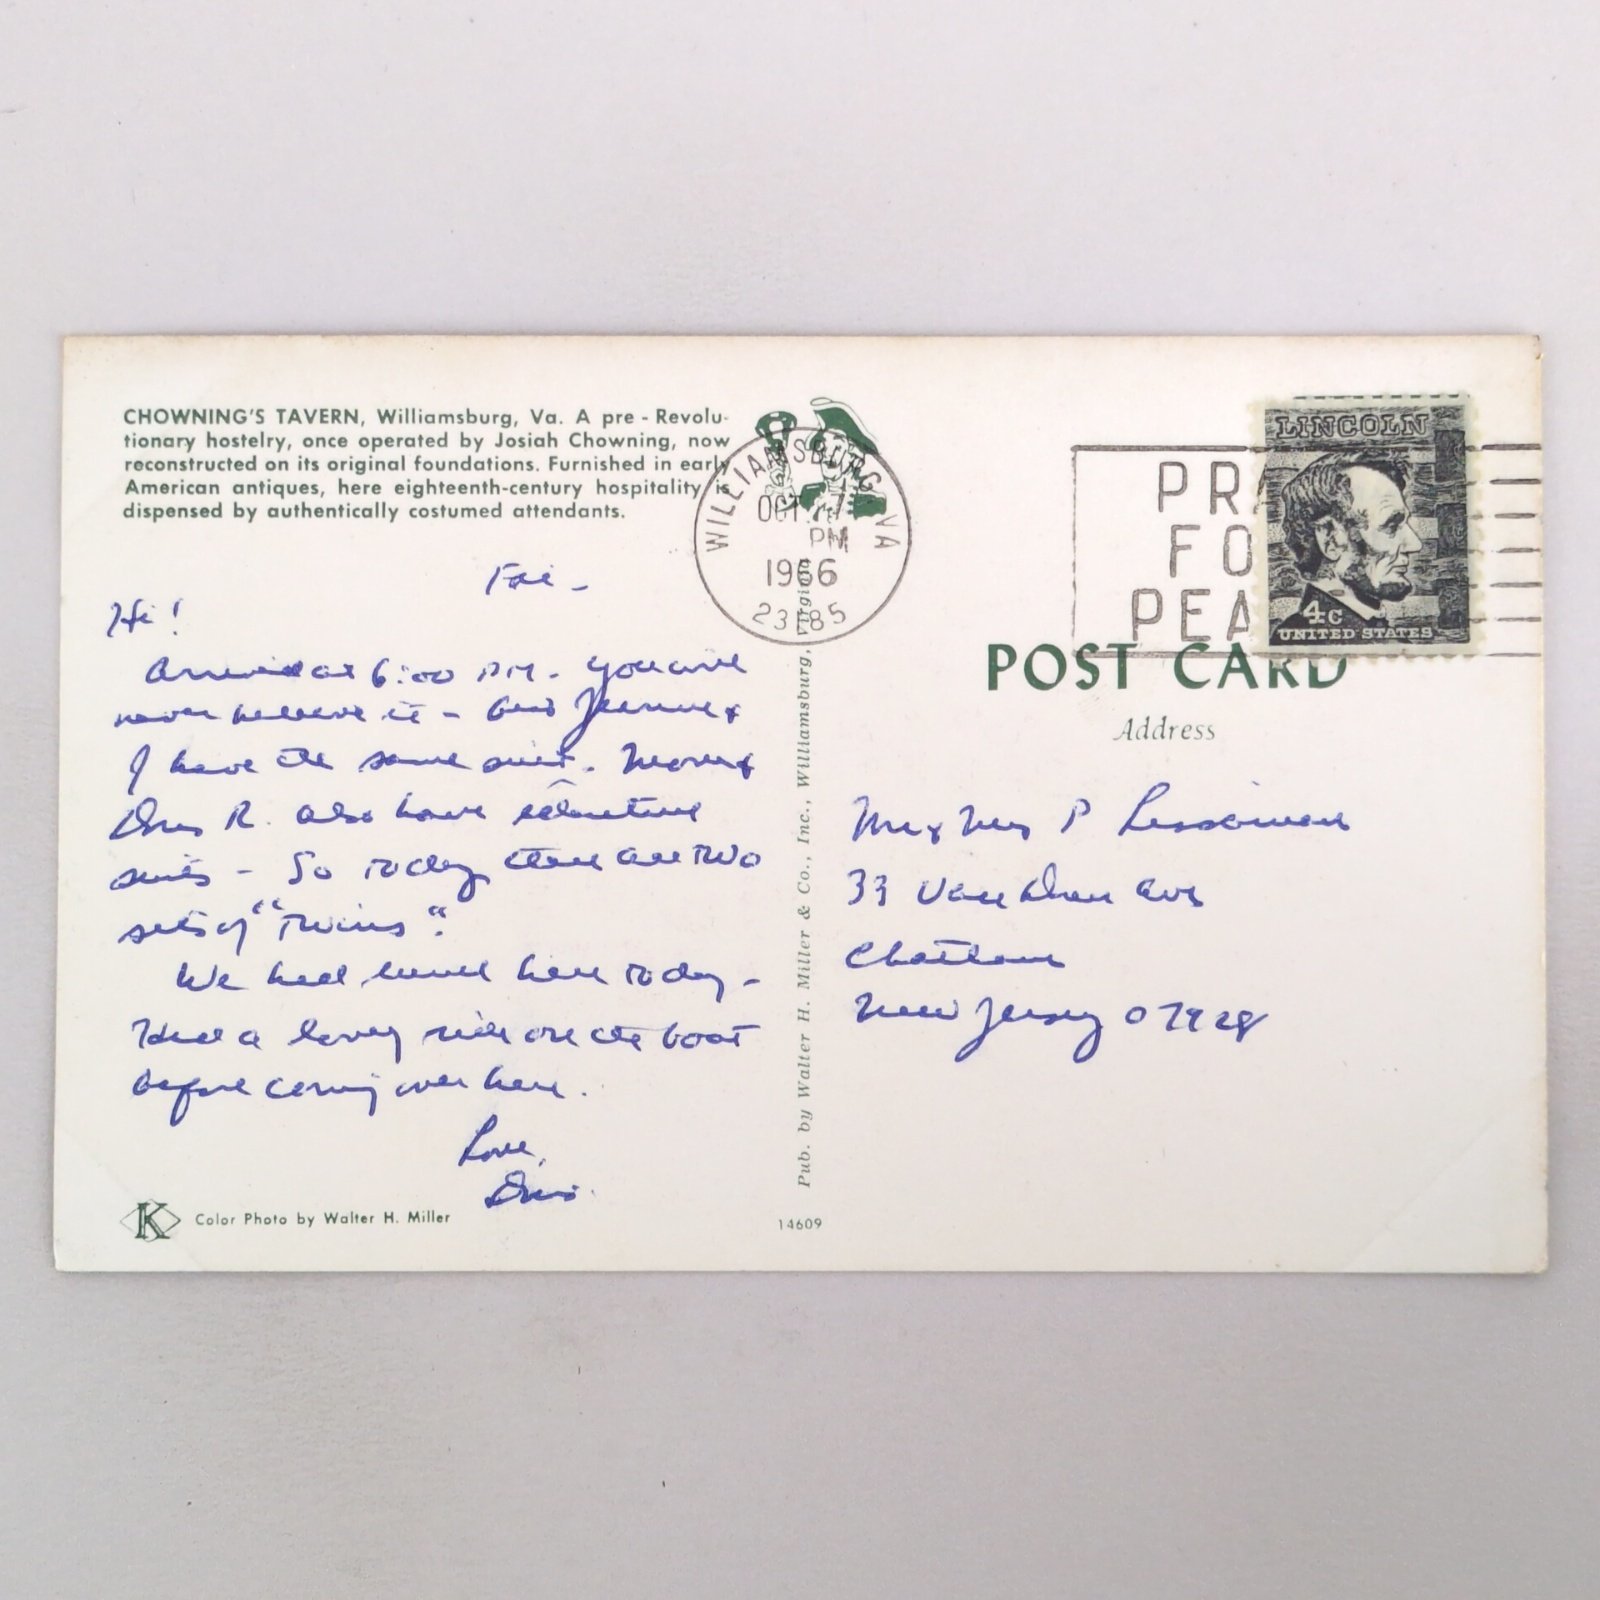 CHOWNING'S TAVERN, Williamsburg, Va. A pre - Revolu-
tionary hostelry, once operated by Josiah Chowning, now
reconstructed on its original foundations. Furnished in early
American antiques, here eighteenth-century hospitality is
dispensed by authentically costumed attendants.
Fri -
Hi!
Arrived at 6:00 P.M. - You will
never believe it - but Jeanne &
I have the same suit. Mom &
Dris R. also have identical
suits - So today there are two
sets of "Twins".
We had lunch here today -
Had a lovely ride on the boat
before coming over here.
Love,
Dris.
K Color Photo by Walter H. Miller
14609
Pub. by Walter H. Miller & Co., Inc., Williamsburg, Virginia
WILLIAMSBURG VA
OCT 7
PM
1966
23185
PR
FO
PEA
LINCOLN
4c
UNITED STATES
POST CARD
Address
Mr & Mrs P
33 Van Doren Ave
Chatham
New Jersey 07928